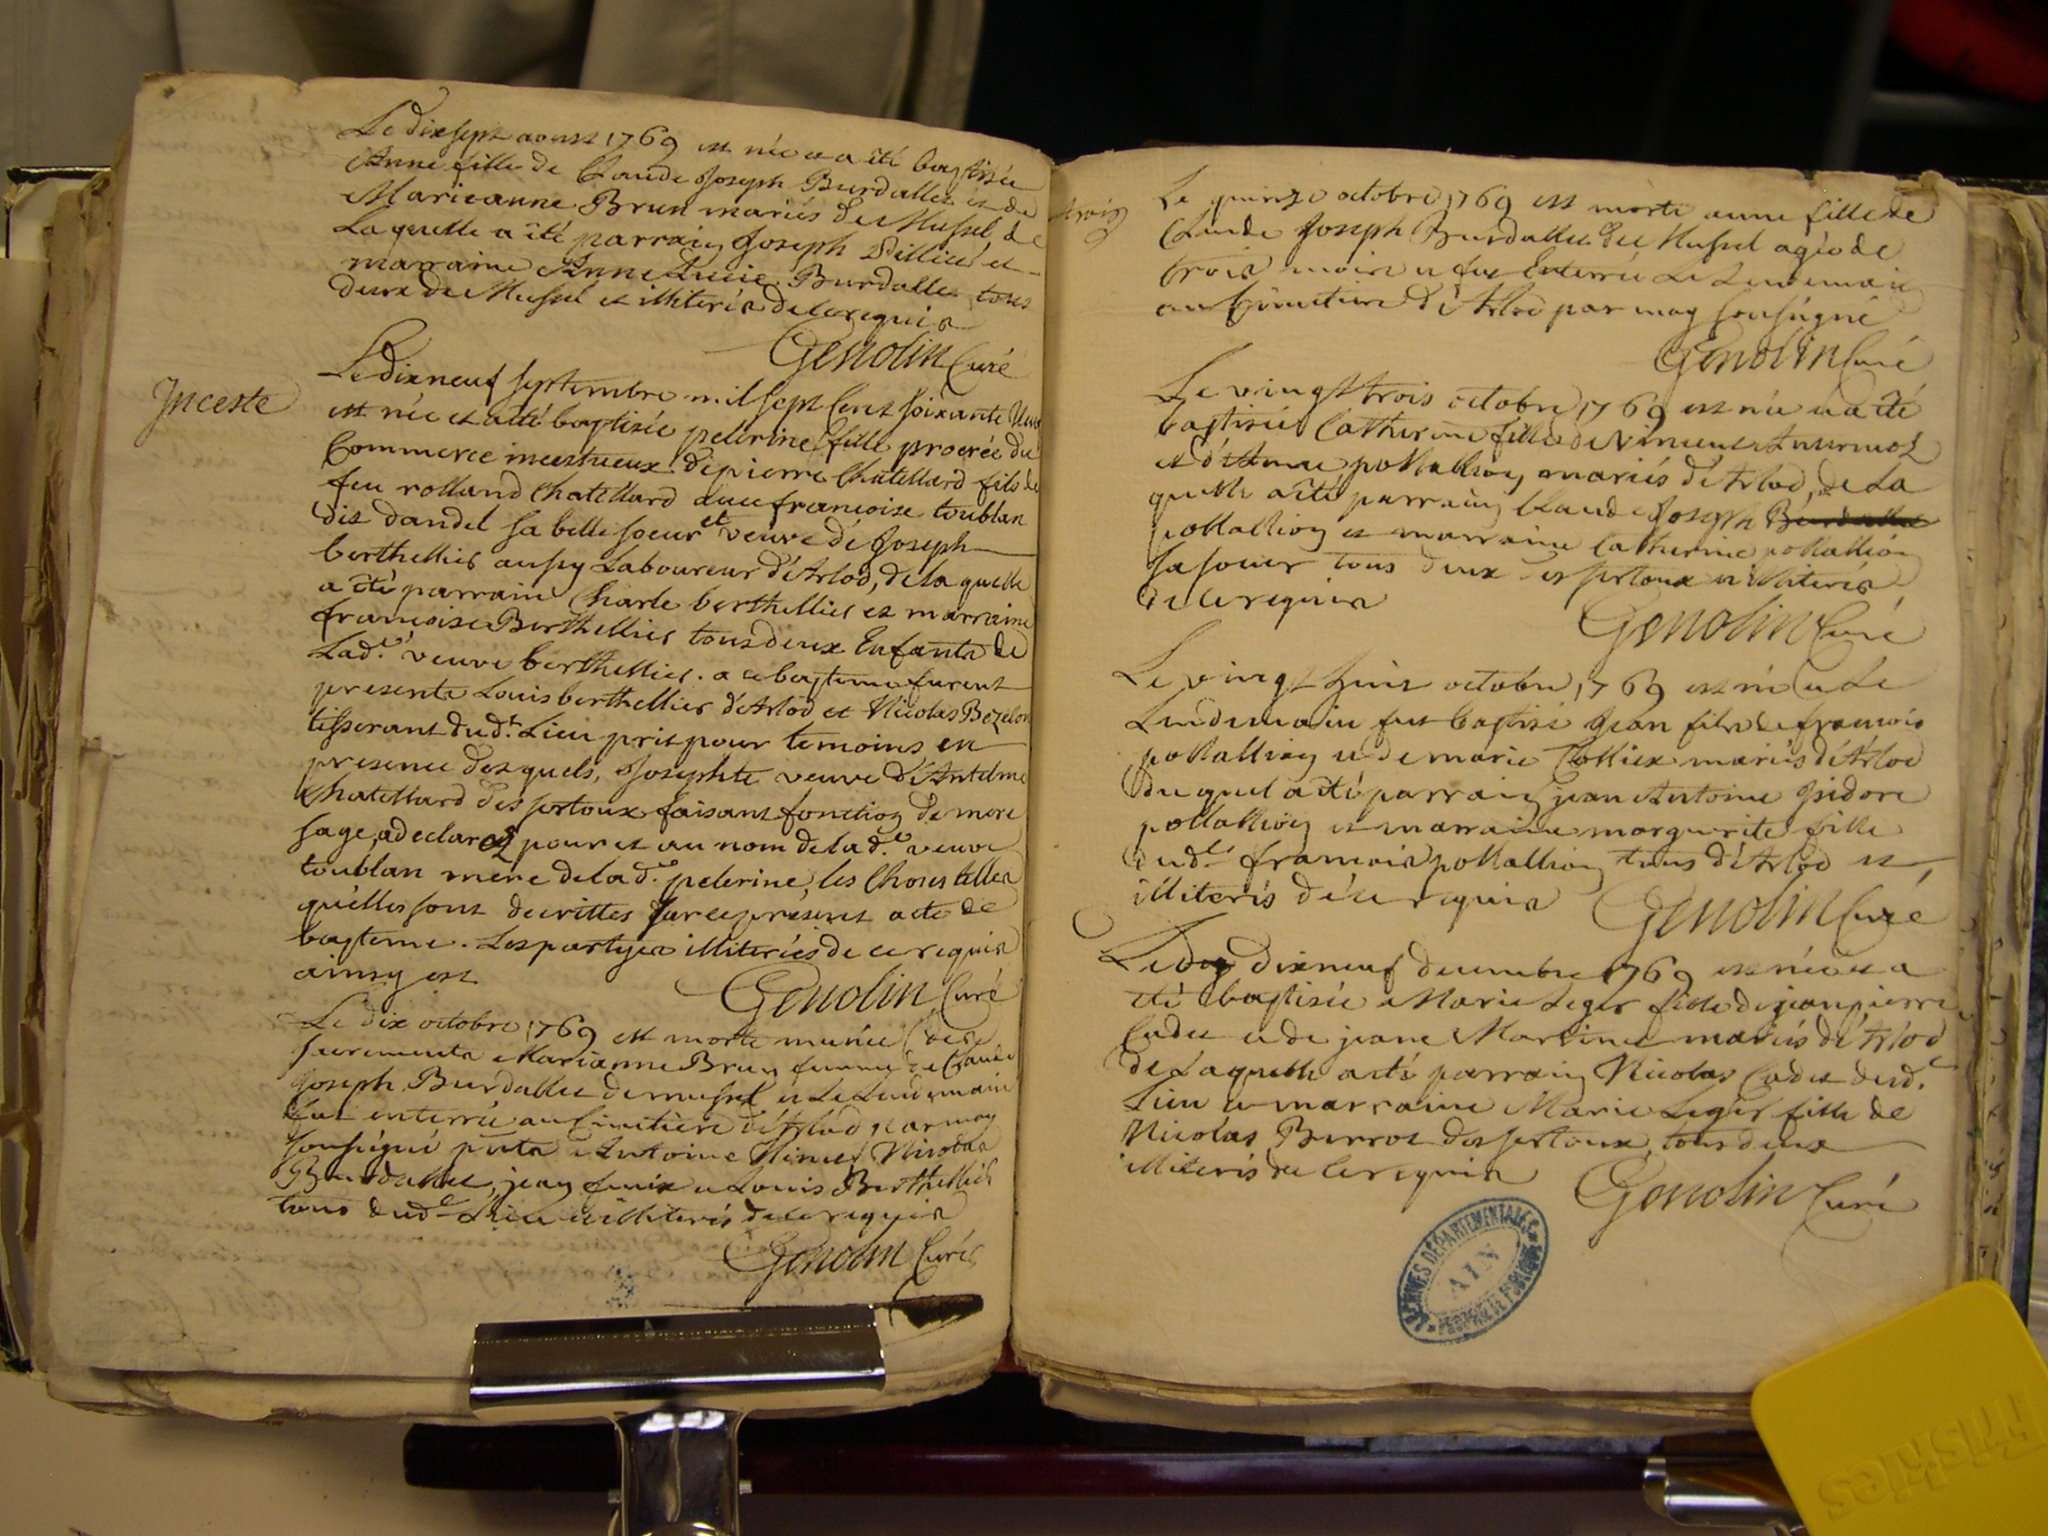 Le dix sept aoust 1769 est née et a été baptisée
Anne fille de Claude Joseph Burdallet et de
Marieanne Brun mariés de Mussel de
Laquelle a été parrain Joseph et
marraine Anne Lucie Burdallet tous
deux de Mussel et illiterés de ce requis
Genolin Curé
Inceste
Le dixneuf septembre mil sept Cent soixante Neuf
est née et a été baptisée pelerine fille procrée du
Commerce incestueux de pierre Chatellard fils de
feu rolland Chatellard avec francoise toublan
dit dandel sa belle soeur et veuve de Joseph
berthellier aussy Laboureur d'Arlod, de la quelle
a été parrain Charle berthellier et marraine
francoise Berthellier tous deux Enfants de
Lad.e veuve berthellier. a ce bapteme furent
presents Louis berthellier d'Arlod et Nicolas Bezelon
tisserant dud.t Lieu pris pour temoins en
presence desquels, Josephte veuve d'Antelme
Chatellard des sertoux faisant fonction de mere
sage, a declaré pour et au nom de lad.e veuve
toublan mere de lad.e pelerine, les Choses telles
qu'elles sont decrittes par ce présent acte de
bapteme. Les partyes illiterées de ce requis
ainsy est
Genolin Curé
Le dix octobre 1769 est morte munie des
sacrements Marianne Brun femme de Claude
Joseph Burdallet de mussel et Le Lendemain
fut enterrée au Cimetiere d'Arlod par moy
soussigné pnts Antoine Ninet Nicolas
Burdallet, jean et Louis Berthellier
tous dud.t Lieu et illiterés de ce requis
Genolin Curé
Le quinze octobre 1769 est morte anne fille de
Claude Joseph Burdallet de Mussel agée de
trois mois et fut Enterrée Le Lendemain
au Cimetiere d'Arlod par moy soussigné
Genolin Curé
Le vingt trois octobre 1769 est née et a été
baptisée Catherine fille de Vincent
et d'Anne poMallion mariés d'Arlod, de La
quelle a été parrain Claude Joseph Burdallet
poMallion et marraine Catherine poMallion
sa soeur tous deux et illiterés
de ce requis
Genolin Curé
Le vingt huit octobre 1769 est né et Le
Lendemain fut baptisé Jean fils de francois
poMallion et de marie mariés d'Arlod
Duquel a été parrain jean Antoine Isidore
poMallion et marraine marguerite fille
dud.t francois poMallion tous d'Arlod et
illiterés de ce requis
Genolin Curé
Le dixneuf decembre 1769 est née et a
été baptisée Marie Leger fille de jean pierre
Cadet et de jeane Martine mariés d'Arlod
de Laquelle a été parrain Nicolas Cadet dud.t
Lieu et marraine Marie Leger fille de
Nicolas Burrot des sertoux, tous deux
illiterés de ce requis
Genolin Curé
ARCHIVES DÉPARTEMENTALES
AIN
Friskies